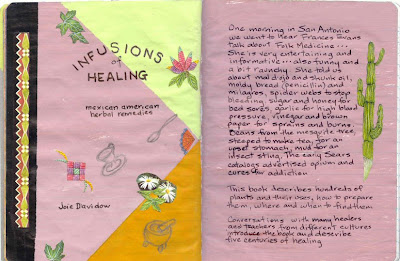 INFUSIONS
of
HEALING
mexican american
herbal remedies
Joie Davidow
One morning in San Antonio
we went to hear Frances Evans
Talk about Folk Medicine...
She is very entertaining and
informative... also funny and
a bit raunchy. She told us
about mal d'ojo and skunk oil,
moldy bread (penicillin) and
milagros, spider webs to stop
bleeding, sugar and honey for
bed sores, garlic for high blood
pressure, vinegar and brown
paper for sprains and burns.
Beans from the mesquite tree,
steeped to make tea, for an
upset stomach, mud for an
insect sting. The early Sears
catalogs advertised opium and
cures for addiction
This book describes hundreds of
plants and their uses, how to prepare
them, where and when to find them.
Conversations with many healers
and teachers from different cultures
introduce the book and describe
five centuries of healing